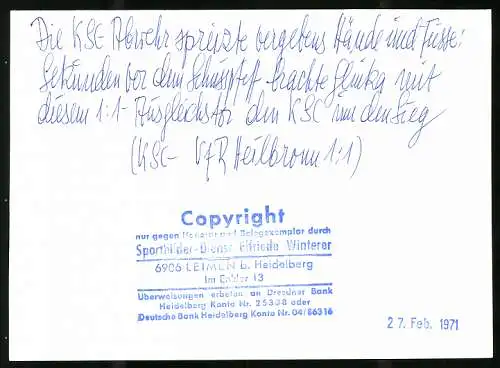 Die KSC-Abwehr spreizte vergebens Hände und Füsse:
Sekunden vor dem Schusspfiff brachte Glinka mit
diesem 1:1-Ausgleichstor den KSC um den Sieg
(KSC- VfR Heilbronn 1:1)
Copyright
nur gegen Honorar und Belegexemplar durch
Sportbilder-Dienst Elfriede Winterer
6906 LEIMEN b. Heidelberg
Im 13
Überweisungen erbeten an Dresdner Bank
Heidelberg Konto Nr. 25338 oder
Deutsche Bank Heidelberg Konto Nr. 04/86316
27. Feb. 1971